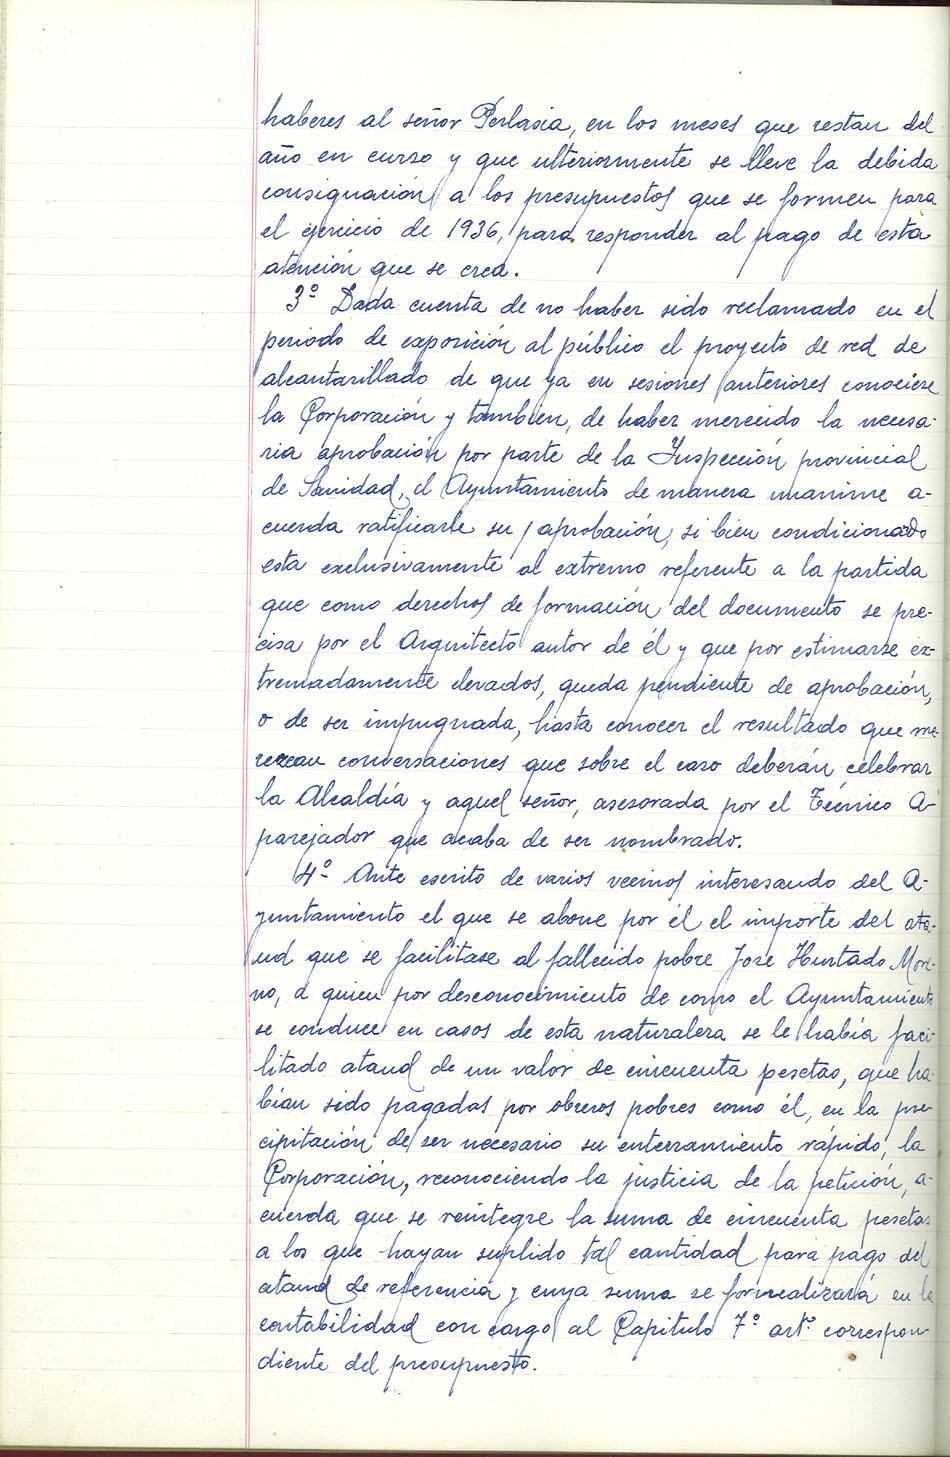 haberes al señor Perlasia, en los meses que restan del
año en curso y que ulteriormente se lleve la debida
consignación a los presupuestos que se formen para
el ejercicio de 1936, para responder al pago de esta
atención que se crea.
3º Dada cuenta de no haber sido reclamado en el
periodo de exposición al público el proyecto de red de
alcantarillado de que ya en sesiones anteriores conociere
la Corporación y tambien, de haber merecido la necesa-
ria aprobación por parte de la Inspección provincial
de Sanidad, el Ayuntamiento de manera unanime a-
cuerda ratificarle su aprobación, si bien condicionado
esta exclusivamente al extremo referente a la partida
que como derechos de formación del documento se pre-
cisa por el Arquitecto autor de él y que por estimarse ex-
tremadamente elevados, queda pendiente de aprobación,
o de ser impugnada, hasta conocer el resultado que me-
rezcan conversaciones que sobre el caso deberán celebrar
la Alcaldía y aquel señor, asesorada por el Técnico A-
parejador que acaba de ser nombrado.
4º Ante escrito de varios vecinos interesando del A-
yuntamiento el que se abone por él el importe del ata-
ud que se facilitase al fallecido pobre Jose Hurtado More-
no, a quien por desconocimiento de como el Ayuntamiento
se conduce en casos de esta naturalera se le había faci-
litado ataud de un valor de cincuenta pesetas, que ha-
bian sido pagadas por obreros pobres como él, en la pre-
cipitación de ser necesario su enterramiento rápido, la
Corporación, reconociendo la justicia de la petición, a-
cuerda que se reintegre la suma de cincuenta pesetas
a los que hayan suplido tal cantidad para pago del
ataud de referencia y cuya suma se formalizará en la
contabilidad con cargo al Capitulo 7º artº correspon-
diente del presupuesto.